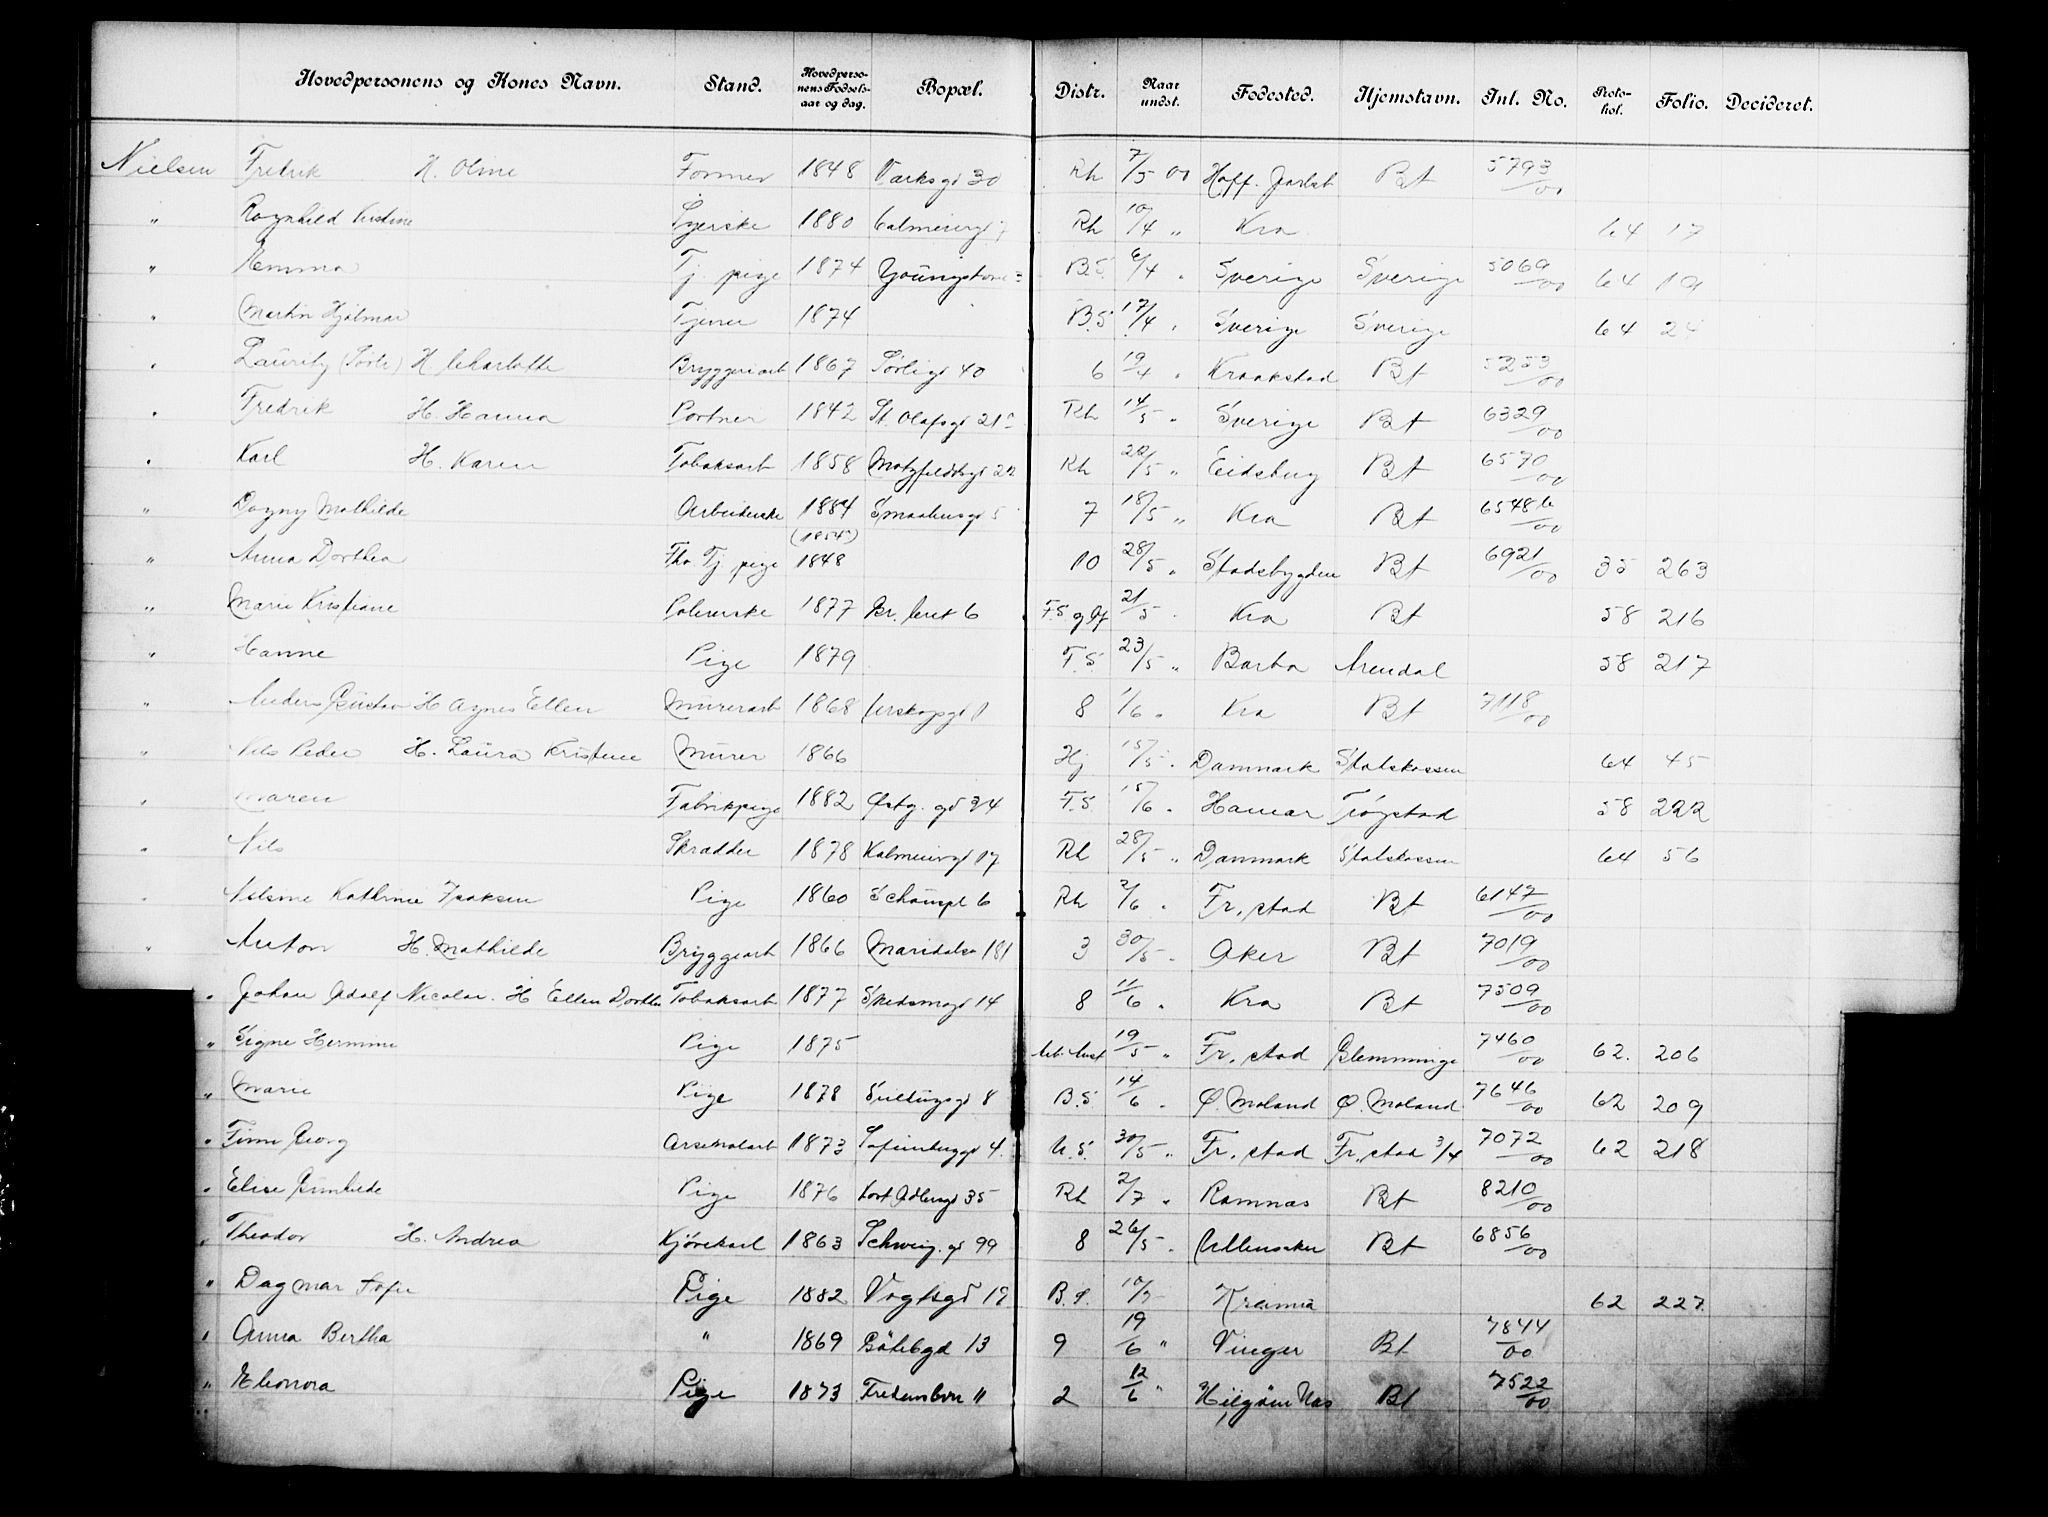 Hovedpersonens og Kones Navn. Stand. Hovedperso-nens Fødsels-aar og dag. Bopæl. Distr. Naar undst. Fødested. Hjemstavn. Int. No. Proto-kol. Folio. Decideret.
Nielsen Fredrik H. Oline Former 1848 Varksgd 30 Rh 7/5 00 Hoff. Jarlsb Bt 5793/00
" Ragnhild Kristine Syerske 1880 Calmeiergd Rh 10/4 " Kra 64 17
" Emma Tj. pige 1874 Youngstorv 3 B.S. 6/4 " Sverige Sverige 5069/00 64 19
" Martin Hjalmar Tjener 1874 B.S 17/4 " Sverige Sverige 64 24
" Lauritz H Charlotte Bryggeriarb 1867 Sørligd 40 6 19/4 " Kraakstad Bt 5253/00
" Fredrik H. Hanna Portner 1842 St. Olafsgd 21 Rh 14/5 " Sverige Bt 6329/00
" Karl H. Karen Tobaksarb 1858 Motzfeldtsgd 22 Rh 22/5 " Eidsberg Bt 6570/00
" Dagny Mathilde Arbeiderske 1884 Smaalensgd 5 7 18/5 " Kra Bt 6548 b/00
" Anna Dorthea Fhv Tj. pige (1854) 1848 10 28/5 " Stadsbygden Bt 6921/00 35 263
" Marie Kristiane Polererske 1877 F.S og 21/5 " Kra Bt 58 216
" Hanne Pige 1879 F.S 23/5 " Barbo Arendal 58 217
" Anders Gustav H Agnes Ellen Murerarb 1868 8 1/6 " Kra Bt 7118/00
" Nils Peder H. Laura Kristine Murer 1866 Hj 15/5 " Danmark Statskassen 64 45
" Maren Fabrikpige 1882 Østg. gd 34 F.S. 15/6 " Hamar Trøgstad 58 222
" Nils Skrædder 1878 Kalmeiergd 17 Rh 28/5 " Danmark Statskassen 64 56
" Nilsine Kathrine Isaksen Pige 1860 Schouspl 6 Rh 2/6 " Fr. stad Bt 6147/00
" Anton H. Mathilde Bryggearb 1866 Maridalsv 181 3 30/5 " Aker Bt 7019/00
" Johan Adolf Nicolai. H Ellen Dorthea Tobaksarb 1877 Skedsmogd 14 8 11/6 " Kra Bt 7509/00
" Signe Hermine Pige 1875 19/5 " Fr. stad Glemminge 7460/00 62. 206
" Marie Pige 1878 Sveltingsgd 8 B.S. 14/6 " Ø. Moland Ø. Moland 7646/00 62 209
" Finn Georg Arsenalarb 1873 Sofienberggd 4. U.S. 30/5 " Fr. stad Fr. stad 3/4 7072/00 62 218
" Elise Gunhilde Pige 1876 Cort Adlersgd 35 Rh 2/7 " Ramnæs Bt 8210/00
" Theodor H. Andrea Kjørekarl 1863 Schweig. gd 99 8 26/5 " Ullensaker Bt 6856/00
" Dagmar Sofie Pige 1882 Vogtsgd 12 B.S. 10/7 Kra 62 227
" Anna Bertha " 1869 Götebgd 13 9 19/6 " Vinger Bt 7844/00
" Eleonora Pige 1873 Fredensborv 11 2 12/6 " Bt 7522/00
"